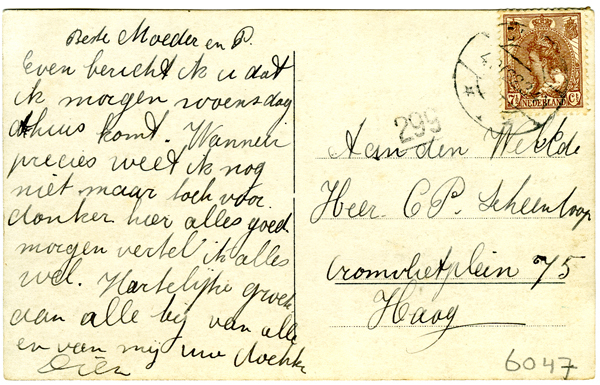 Beste Moeder en P.
Even bericht ik u dat
ik morgen woensdag
thuis komt. Wanneer
precies weet ik nog
niet maar toch voor
donker hier alles goed
morgen vertel ik alles
wel. Hartelijke groet
aan alle bij van alle
en van mij uw dochter
Dien
7½ NEDERLAND Ct
299
Aan den
Heer C P. Scheen
Cromvlietplein 75
Haag
6047